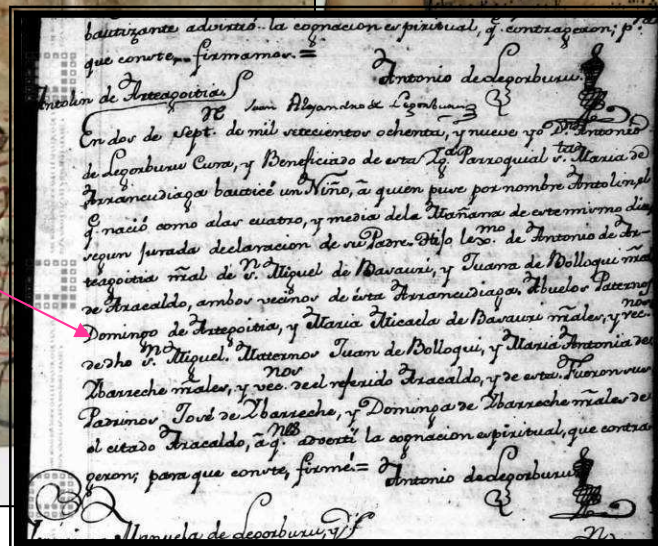 bautizante advirtió la cognacion espiritual, q. contrageron; p.a
que conste, firmamos =
Antonio de Legorburu
Antolin de Arteagoitia
Juan Alejandro de Legorburu
En dos de Sept. de mil setecientos ochenta, y nueve yo Dn. Antonio
de Legorburu Cura, y Beneficiado de esta Igª Parroquial Sta. Maria de
Arrancudiaga bauticé un Niño, à quien puse por nombre Antolin, el
q. nació como alas cuatro, y media dela Mañana de este mismo dia,
segun jurada declaracion de su Padre. Hijo lexmo. de Antonio de Ar-
teagoitia nral de Sn. Miguel de Basauri, y Juana de Bolloqui nral
de Aracaldo, ambos vecinos de ésta Arrancudiaga. Abuelos Paternos
Domingo de Artegoitia, y Maria Micaela de Basauri nrales, y vecnos
de dho Sn. Miguel. Maternos Juan de Bolloqui, y Maria Antonia de
Ybarreche nrales, y vecnos de el referido Aracaldo, y de esta. Fueron sus
Padrinos José de Ybarreche, y Dominga de Ybarreche nrales de
el citado Aracaldo, à qnes advertí la cognacion espiritual, que contra
geron; para que conste, firmé =
Antonio de Legorburu
Manuela de Legorburu, y